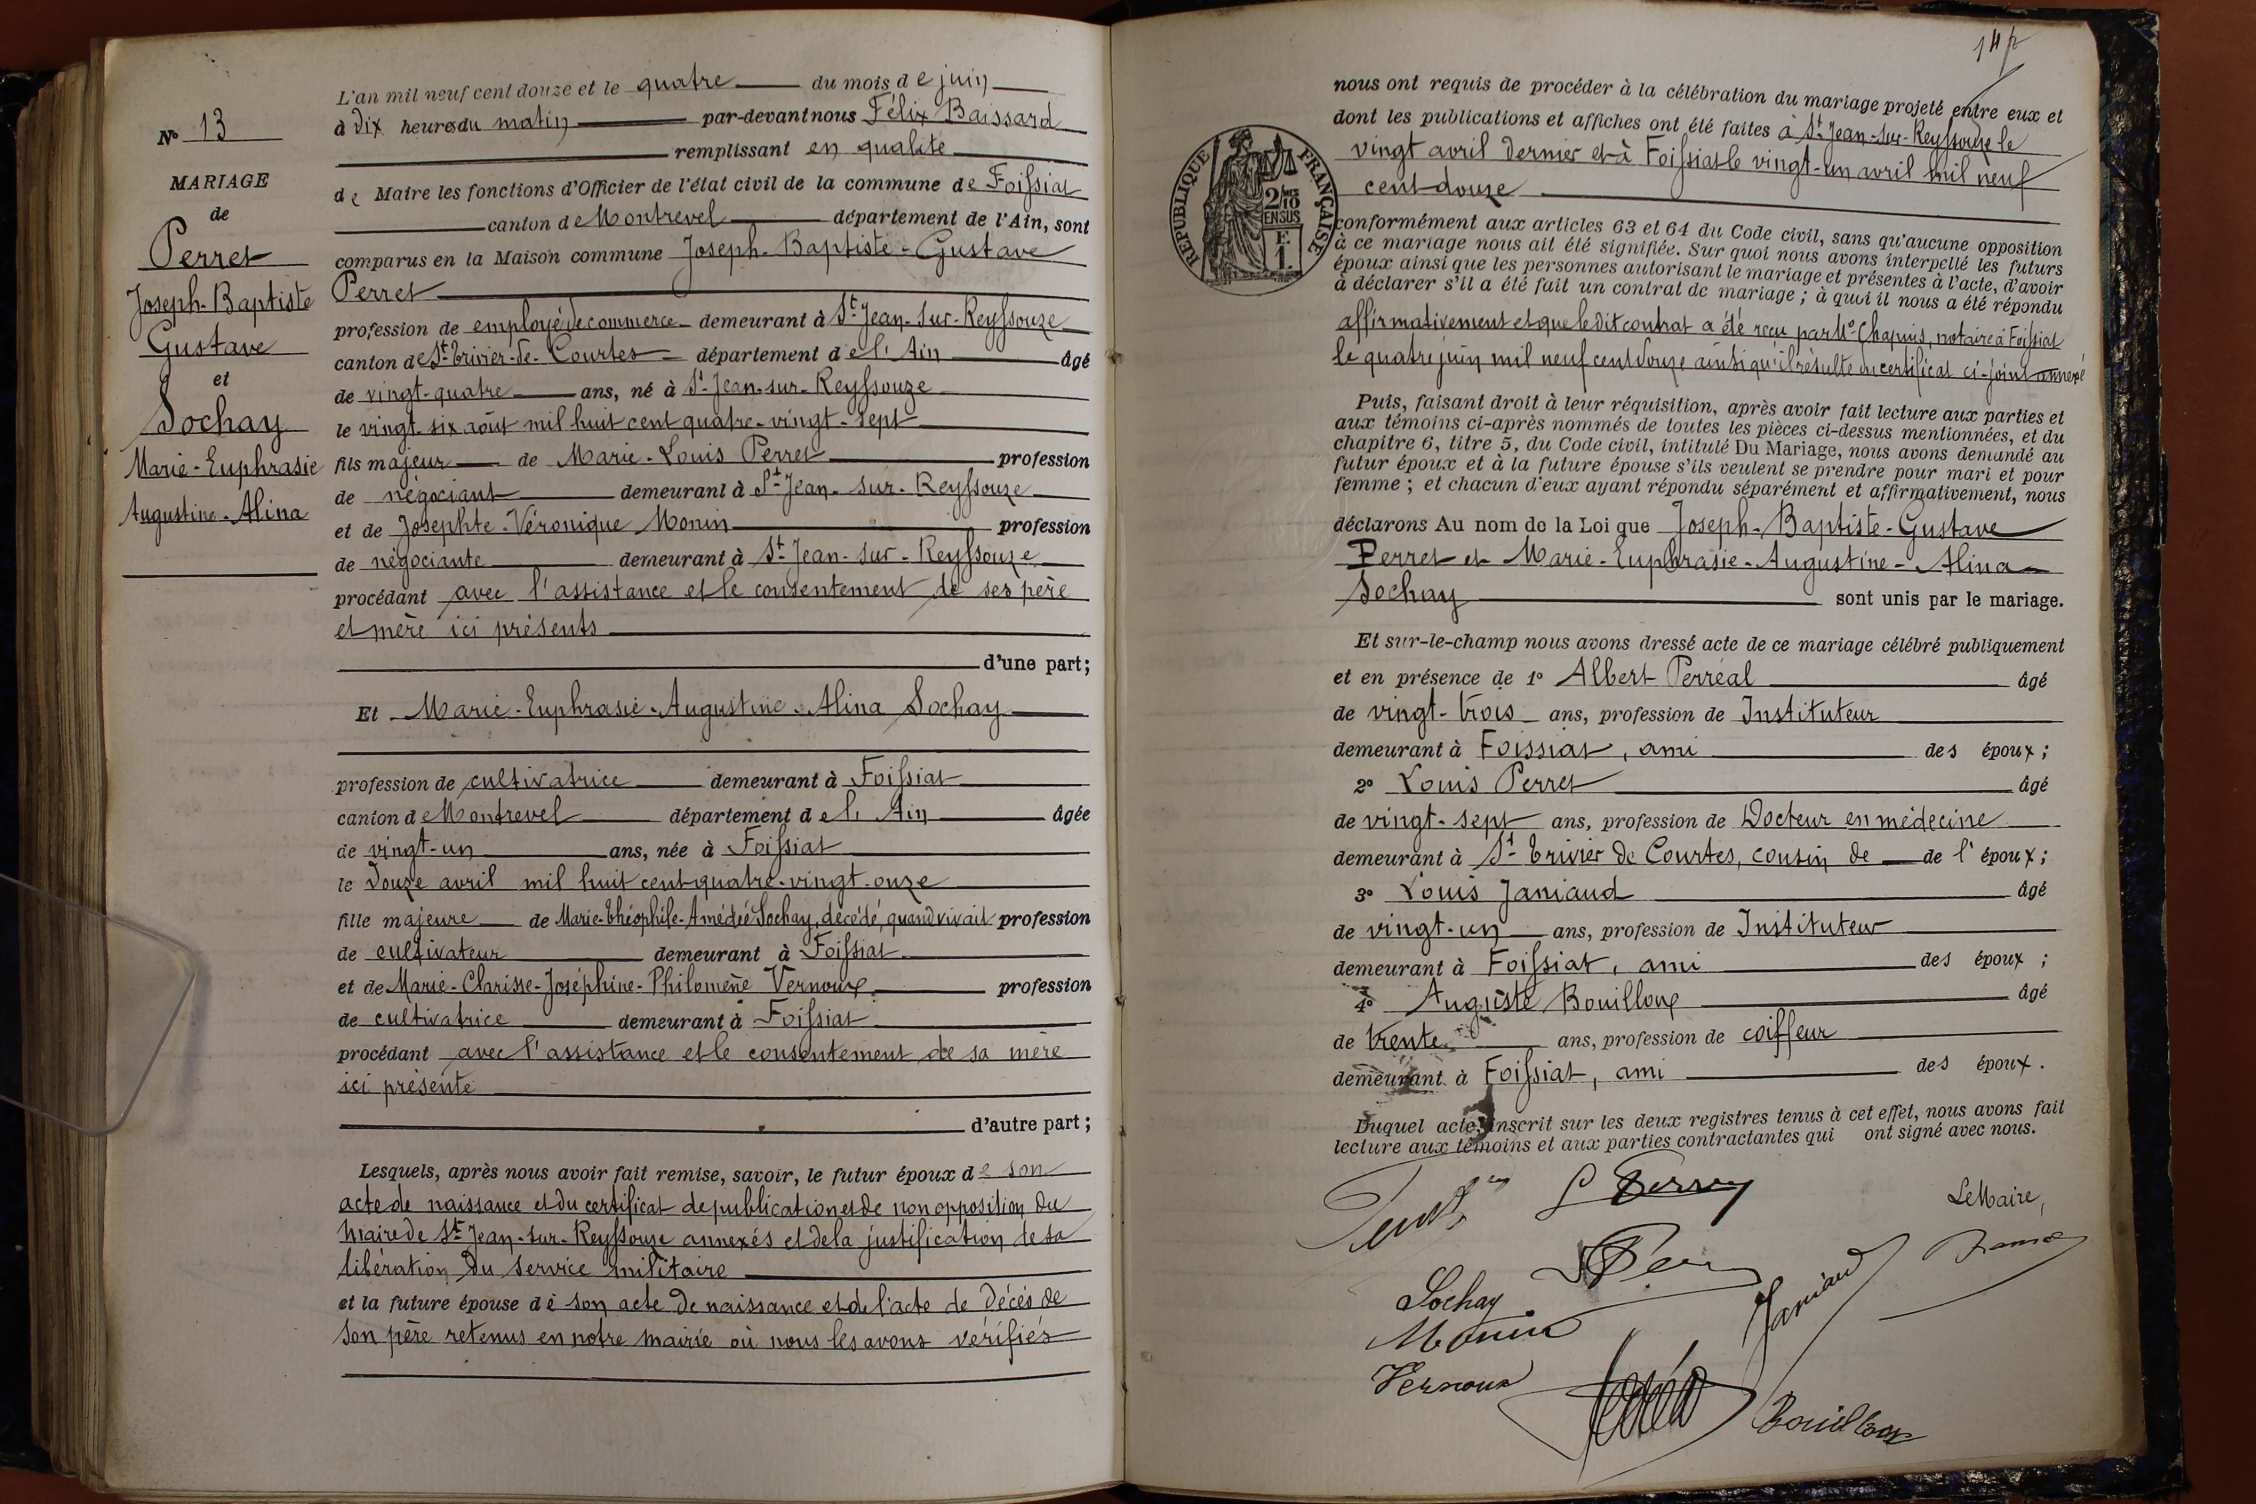 N° 13
MARIAGE
de
Perret
Joseph-Baptiste
Gustave
et
Sochay
Marie-Euphrasie
Augustine-Alina
L'an mil neuf cent douze et le quatre du mois de juin
à dix heures du matin par-devant nous Félix Baissard
remplissant en qualité
de Maire les fonctions d'Officier de l'état civil de la commune de Foissiat
canton de Montrevel département de l'Ain, sont
comparus en la Maison commune Joseph-Baptiste-Gustave
Perret
profession de employé de commerce demeurant à St Jean-sur-Reyssouze
canton de St-Trivier-de-Courtes département de l'Ain âgé
de vingt-quatre ans, né à St-Jean-sur-Reyssouze
le vingt-six août mil huit cent quatre-vingt-sept
fils majeur de Marie-Louis Perret profession
de négociant demeurant à St-Jean-sur-Reyssouze
et de Josephte-Véronique Monin profession
de négociante demeurant à St-Jean-sur-Reyssouze
procédant avec l'assistance et le consentement de ses père
et mère ici présents
d'une part;
Et Marie-Euphrasie-Augustine-Alina Sochay
profession de cultivatrice demeurant à Foissiat
canton de Montrevel département de l'Ain âgée
de vingt-un ans, née à Foissiat
le douze avril mil huit cent quatre-vingt-onze
fille majeure de Marie-Théophile-Amédée Sochay, décédé, quand vivait profession
de cultivateur demeurant à Foissiat
et de Marie-Clarisse-Joséphine-Philomène Vernoux profession
de cultivatrice demeurant à Foissiat
procédant avec l'assistance et le consentement de sa mère
ici présente
d'autre part;
Lesquels, après nous avoir fait remise, savoir, le futur époux de son
acte de naissance et du certificat de publication et de non opposition du
Maire de St-Jean-sur-Reyssouze annexés et de la justification de sa
libération du service militaire
et la future épouse de son acte de naissance et de l'acte de décès de
son père retenus en notre mairie où nous les avons vérifiés
nous ont requis de procéder à la célébration du mariage projeté entre eux et
dont les publications et affiches ont été faites à St-Jean-sur-Reyssouze le
vingt avril dernier et à Foissiat le vingt-un avril mil neuf
cent-douze
RÉPUBLIQUE FRANÇAISE
2/10 EN SUS
conformément aux articles 63 et 64 du Code civil, sans qu'aucune opposition
à ce mariage nous ait été signifiée. Sur quoi nous avons interpellé les futurs
époux ainsi que les personnes autorisant le mariage et présentes à l'acte, d'avoir
à déclarer s'il a été fait un contrat de mariage; à quoi il nous a été répondu
affirmativement et que le dit contrat a été reçu par Me Chapuis, notaire à Foissiat
le quatre juin mil neuf cent douze, ainsi qu'il résulte du certificat ci-joint annexé
Puis, faisant droit à leur réquisition, après avoir fait lecture aux parties et
aux témoins ci-après nommés de toutes les pièces ci-dessus mentionnées, et du
chapitre 6, titre 5, du Code civil, intitulé Du Mariage, nous avons demandé au
futur époux et à la future épouse s'ils veulent se prendre pour mari et pour
femme; et chacun d'eux ayant répondu séparément et affirmativement, nous
déclarons Au nom de la Loi que Joseph-Baptiste-Gustave
Perret et Marie-Euphrasie-Augustine-Alina
Sochay sont unis par le mariage.
Et sur-le-champ nous avons dressé acte de ce mariage célébré publiquement
et en présence de 1° Albert Perréal âgé
de vingt-trois ans, profession de Instituteur
demeurant à Foissiat, ami des époux;
2° Louis Perret âgé
de vingt-sept ans, profession de Docteur en médecine
demeurant à St-Trivier de Courtes, cousin de de l'époux;
3° Louis Janiaud âgé
de vingt-un ans, profession de Instituteur
demeurant à Foissiat, ami des époux;
4° Auguste Bouilloux âgé
de trente ans, profession de coiffeur
demeurant à Foissiat, ami des époux.
Duquel acte, inscrit sur les deux registres tenus à cet effet, nous avons fait
lecture aux témoins et aux parties contractantes qui ont signé avec nous.
Le Maire,
Sochay
Janiaud
Monin
Vernoux
Bouilloux